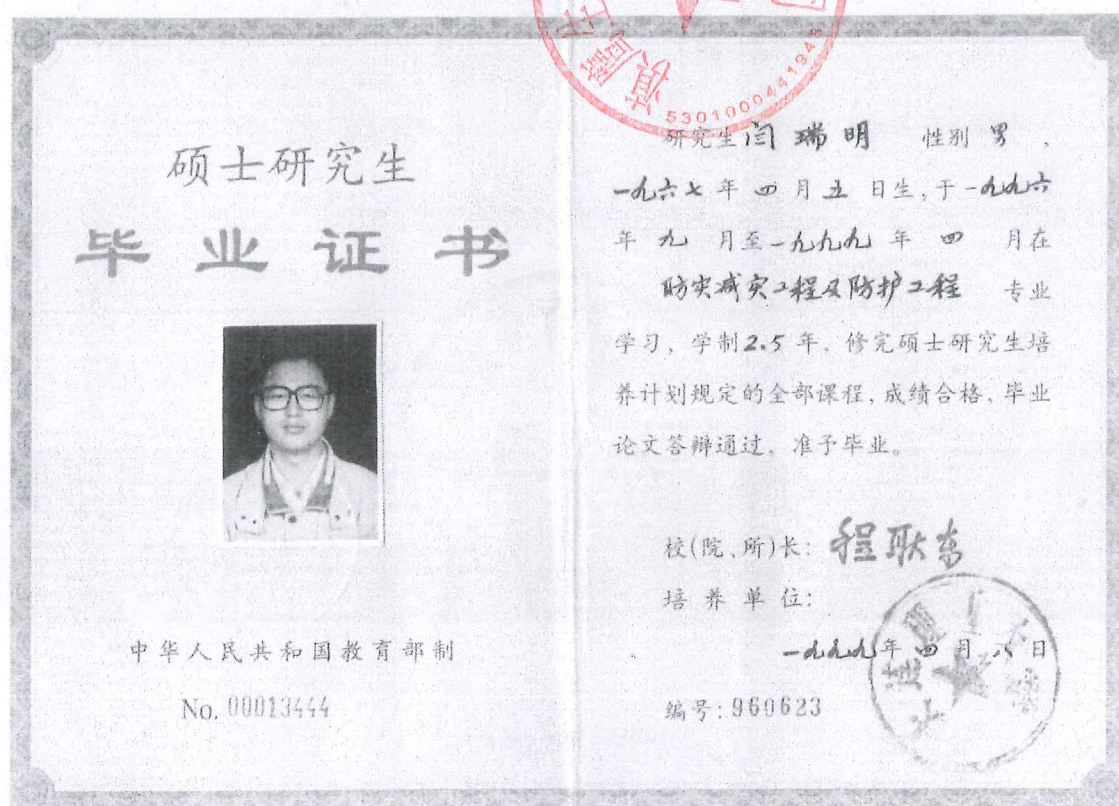 硕士研究生
毕业证书
中华人民共和国教育部制
No. 00013444
5301000441948
研究生 闫瑞明 性别 男 ,
一九六七年 四 月 五 日生,于一九九六
年 九 月至一九九九 年 四 月在
防灾减灾工程及防护工程 专业
学习、学制2.5 年、修完硕士研究生培
养计划规定的全部课程,成绩合格、毕业
论文答辩通过, 准予毕业。
校(院、所)长:
培 养 单 位:
一九九九年 四 月 八 日
编号: 960623